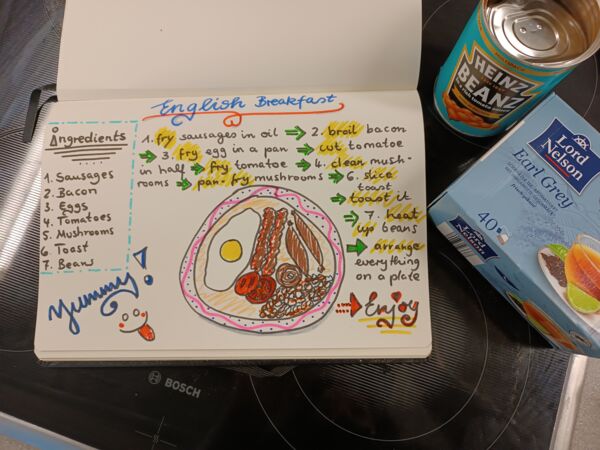 English Breakfast
Ingredients
1. Sausages
2. Bacon
3. Eggs
4. Tomatoes
5. Mushrooms
6. Toast
7. Beans
1. fry sausages in oil → 2. broil bacon
→ 3. fry egg in a pan → cut tomatoe
in half → fry tomatoe → 4. clean mush-
rooms → pan-fry mushrooms → 6. slice
toast
→ toast it
→ 7. heat
up beans
→ arrange
everything
on a plate
Enjoy
Yummy!
BOSCH
HEINZ
BEANZ
Lord
Nelson
Earl Grey
40
Lord
Nelson